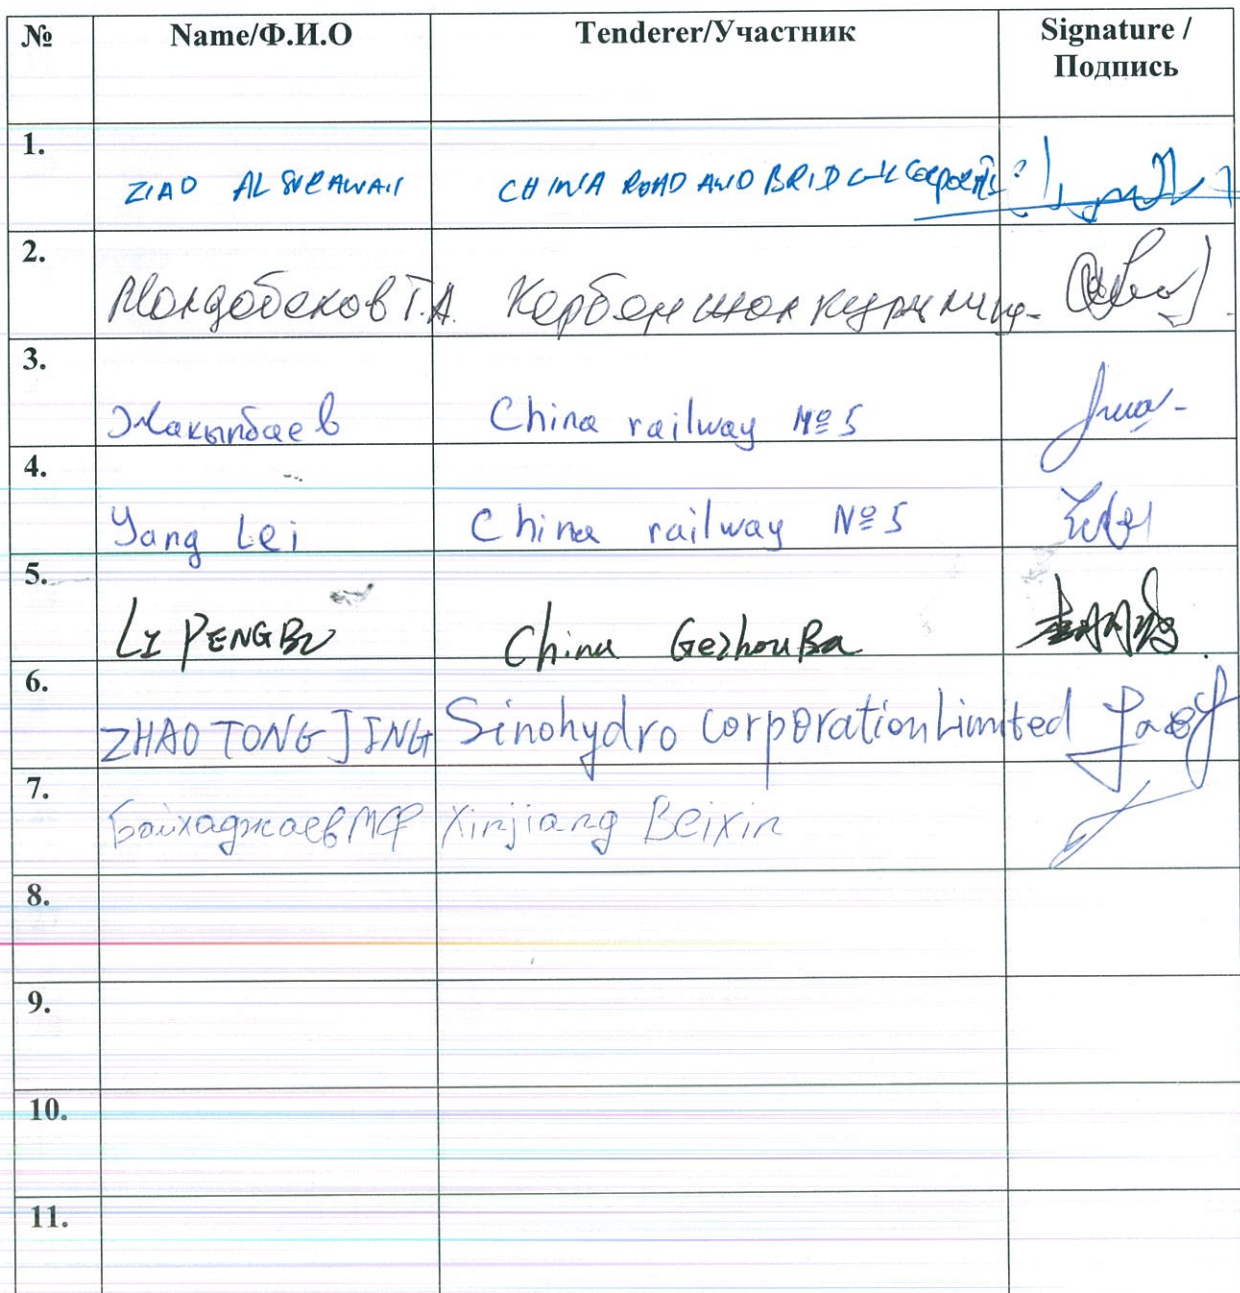 № Name/Ф.И.О Tenderer/Участник Signature /
Подпись
1.
ZIAD CHINA ROAD AND BRIDGE
2.
Молдобеков Т.А.
3.
Жакыпбаев China railway №5
4.
Yang Lei China railway №5
5.
LI PENGBO China GezhouBa
6.
ZHAO TONG JING Sinohydro corporation Limited
7.
Байхаджаев МФ Xinjiang Beixin
8.
9.
10.
11.